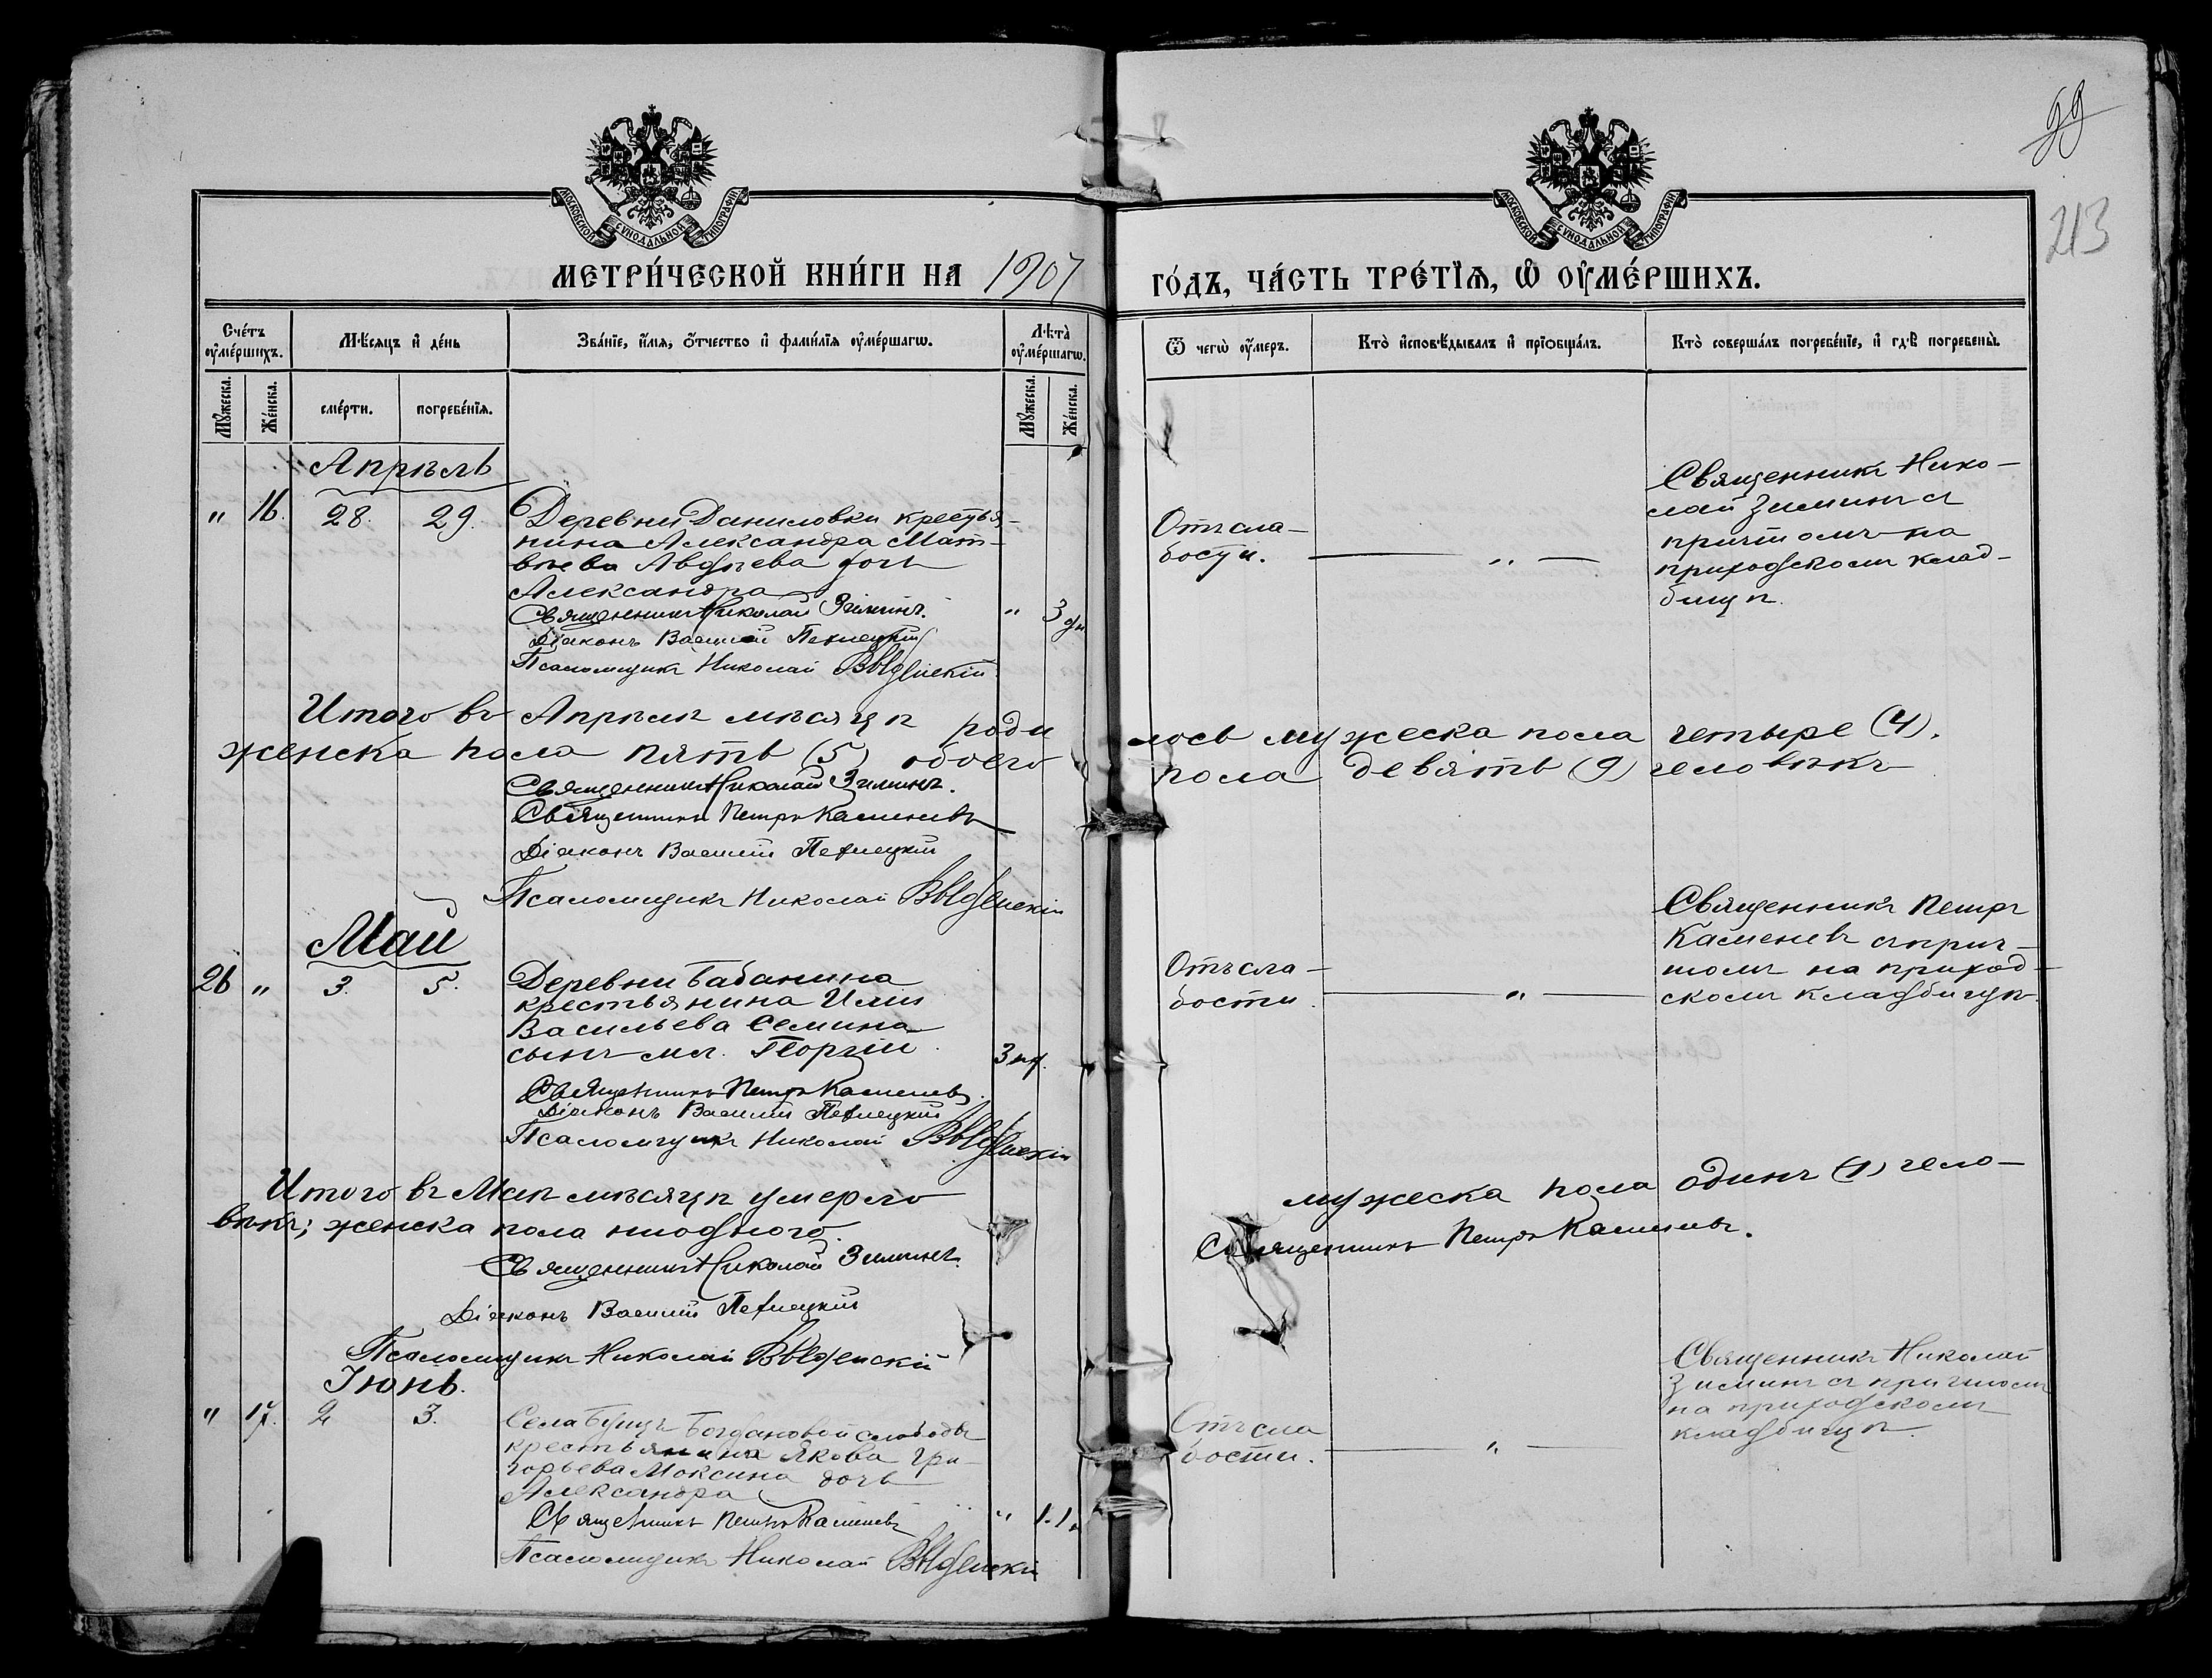 99
213
МОСКОВСКОЙ СѴНОДАЛЬНОЙ ТИПОГРАФІИ
МОСКОВСКОЙ СѴНОДАЛЬНОЙ ТИПОГРАФІИ
МЕТРИ́ЧЕСКОЙ КНИ́ГИ НА 1907 ГО́ДЪ, ЧА́СТЬ ТРЕ́ТІѦ, Ѡ҆ ОУ҆МЕ́РШИХЪ.
Сче́тъ оу҆ме́ршихъ.
Мѣ́сяцъ и҆ де́нь
Зва́ніе, и҆́мѧ, ѻ҆́тчество и҆ фами́лїѧ оу҆ме́ршагѡ.
Лѣ́та оу҆ме́ршагѡ.
Ѿ чегѡ̀ оу҆́меръ.
Кто̀ и҆сповѣ́дывалъ и҆ прїѡбща́лъ.
Кто̀ соверша́лъ погребе́нїе, и҆ гдѣ̀ погребены̀.
Мꙋ́жеска.
Же́нска.
сме́рти.
погребе́нїѧ.
Мꙋ́жеска.
Же́нска.
Апрѣль
" 16. 28. 29.
Деревни Даниловки крестья-
нина Александра Мат-
вѣева Авдѣева дочь
Александра
" 3 дн
Священникъ Николай Зиминъ.
Діаконъ Василій
Псаломщикъ Николай Введенскій
Отъ сла-
бости.
"
Священникъ Нико-
лай Зиминъ съ
причтомъ на
приходскомъ клад-
бищѣ.
Итого въ Апрѣлѣ мѣсяцѣ роди
лось мужеска пола четыре (4).
женска пола пять (5) обоего
пола девять (9) человѣкъ
Священникъ Николай Зиминъ.
Священникъ Петръ Каменевъ
Діаконъ Василій
Псаломщикъ Николай Введенскій
Май
26 " 3. 5.
Деревни Бабанина
крестьянина Иліи
Васильева Семина
сынъ мл. Георгій.
3 нед.
Священникъ Петръ Каменевъ.
Діаконъ Василій
Псаломщикъ Николай Введенскій
Отъ сла-
бости.
"
Священникъ Петръ
Каменевъ съ прич-
томъ на приход-
скомъ кладбищѣ.
Итого въ Маѣ мѣсяцѣ умерло
мужеска пола одинъ (1) чело-
вѣкъ; женска пола ниодного.
Священникъ Николай Зиминъ.
Священникъ Петръ Каменевъ.
Діаконъ Василій
Псаломщикъ Николай Введенскій
Іюнь.
" 17. 2 3.
Села Богдановой слободы
крестьянина Якова Гри-
горьева Моксина дочь
Александра
"
Священникъ Петръ Каменевъ
Псаломщикъ Николай Введенскій
Отъ сла
бости.
"
Священникъ Николай
Зиминъ съ причтомъ
на приходскомъ
кладбищѣ.